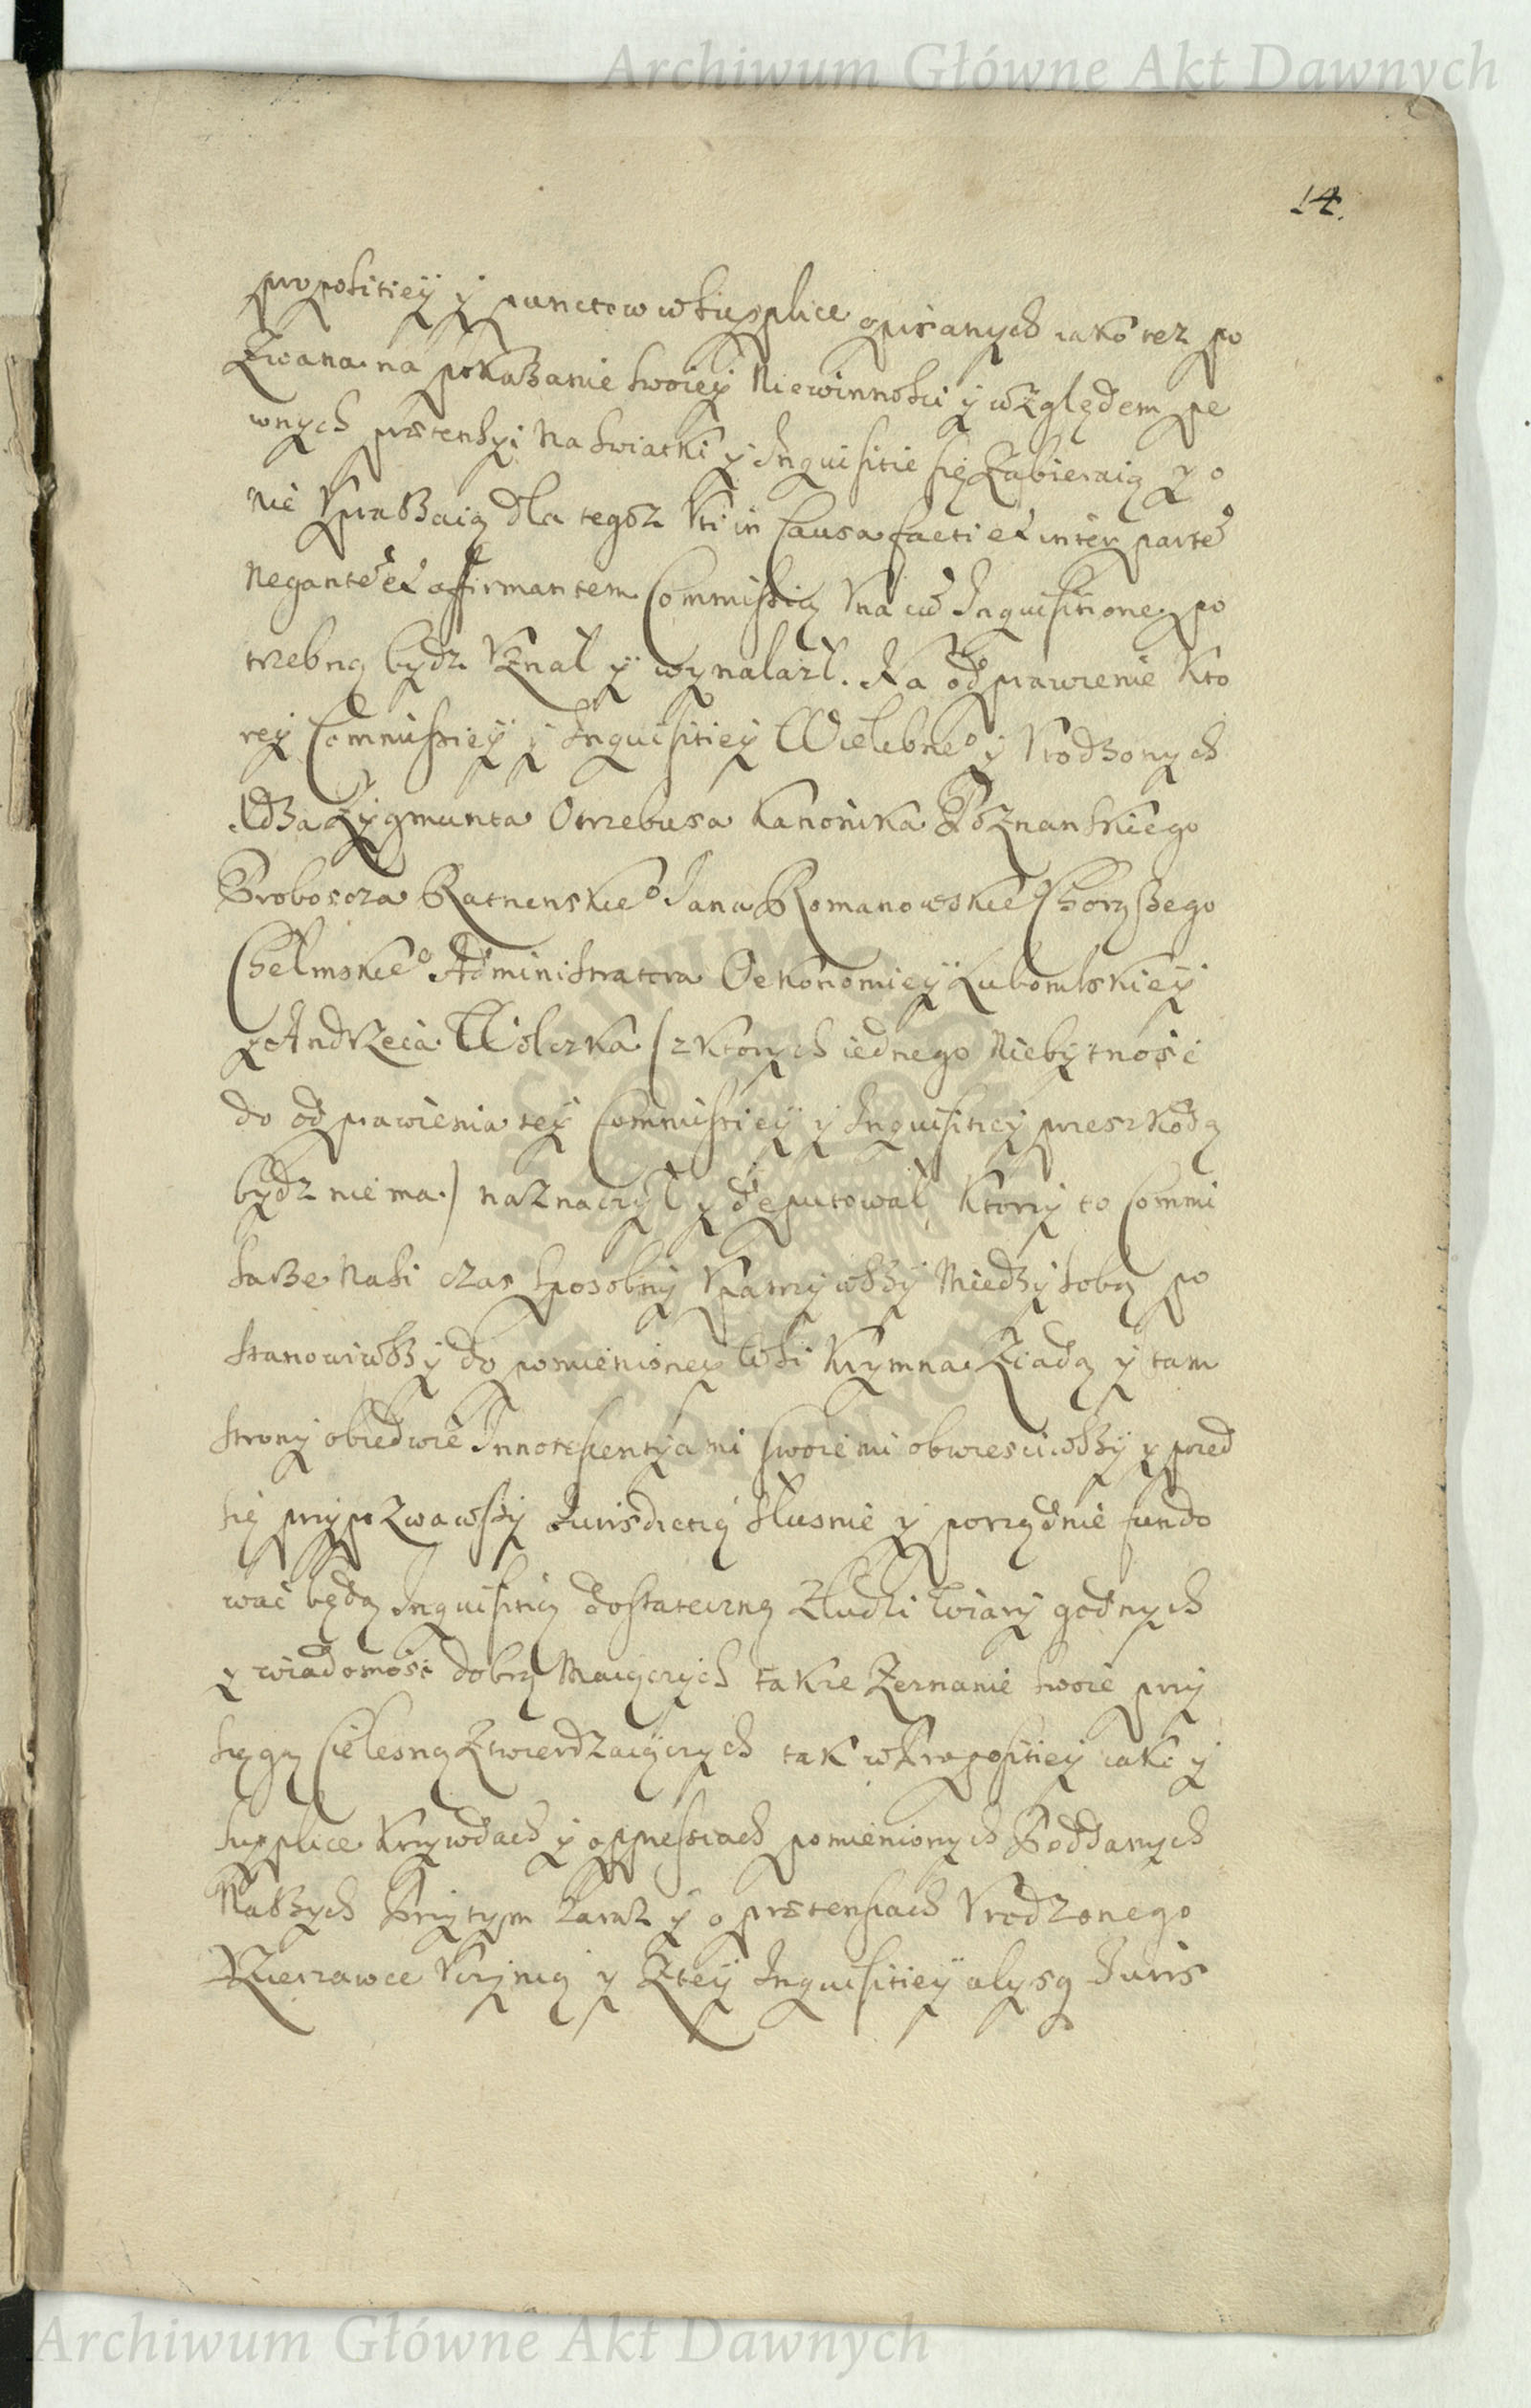 Archiwum Główne Akt Dawnych
14.
propositiey y punctow w supplice opisanych iako tez po
Zwana na pokazanie swoiey Niewinnosci y względem pe
wnych prætensyi Na swiatki y Inquisitie się Zabieraią y o
nie Vpraszaią dla tegosz Vti in Causa facti et inter parte
Negante et affirmantem Commissią Vna cu Inquisitione po
trzebną bydz Vznał y wynalazl. Na odprawienie Kto
rey Commissiey y Inquisitiey Wielebne° y Vrodzonych
Xdza Zygmunta Otrzebusa Kanonika Poznanskiego
Proboscza Ratnenskie° Jana Romanowskie° Chorąszego
Chelmskie° Administratora Oekonomiey Lubomlskiey
y Andrzeia Wolczka (z ktorych iednego Niebytnosć
do odprawienia tey Commissiey y Inquisitiey przeszkodą
bydz nie ma) naznaczył y deputował Ktorzy to Commi
sarze Nasi czas sposobny Vpatrzywszy Miedzy sobą po
stanowiwszy do pomienioney Wsi Krymna Ziadą y tam
strony obiedwie Innotescentyami swoiemi obwiesciwszy y przed
się przypozwawszy Jurisdictią słusnie y porządnie fundo
wać będą Inquisitią dostateczną Zludzi wiary godnych
y wiadomość dobrą Maiących takze Zeznanie swoie przy
sięgą Cielesną Ztwierdzaiących tak w Propositiey iako y
supplice Krzywdach y oppressiach pomienionych Poddanych
Naszych Przytym zaraz y o prætensiach Vrodzonego
Vczynią y Ztey Inquisitiey Juris
Archiwum Główne Akt Dawnych